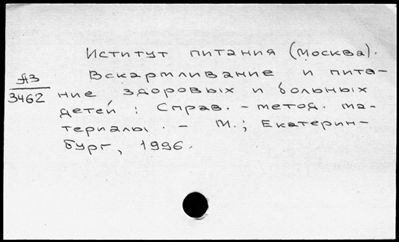 Иститут питания (Москва).
А3
3462
Вскармливание и пита-
ние здоровых и больных
детей : Справ. - метод. ма-
териалы. - М.; Екатерин-
бург, 1996.